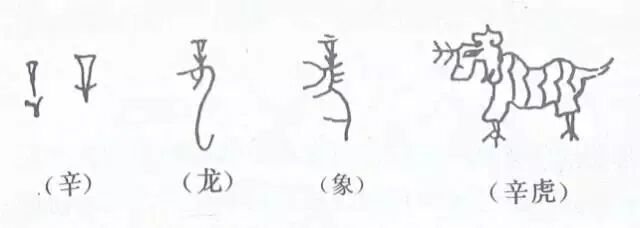 （辛） （龙） （象） （辛虎）